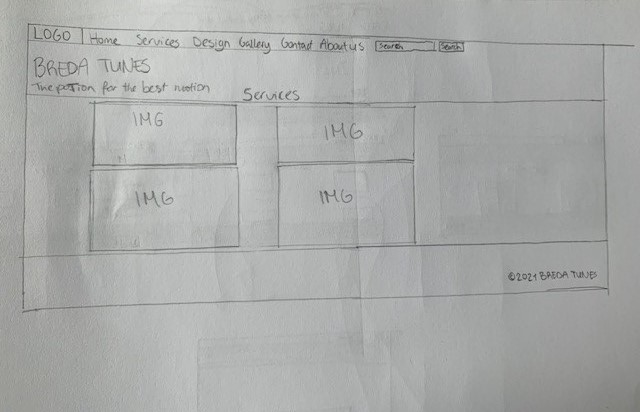 LOGO Home Services Design Gallery Contact About us Search Search
BREDA TUNES
The potion for the best motion
Services
IMG IMG
IMG IMG
©2021 BREDA TUNES